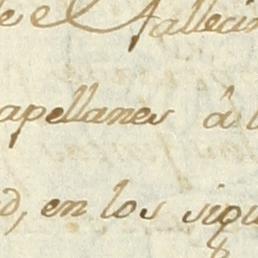 e el falleci
apellanes â l
d, en los sigu